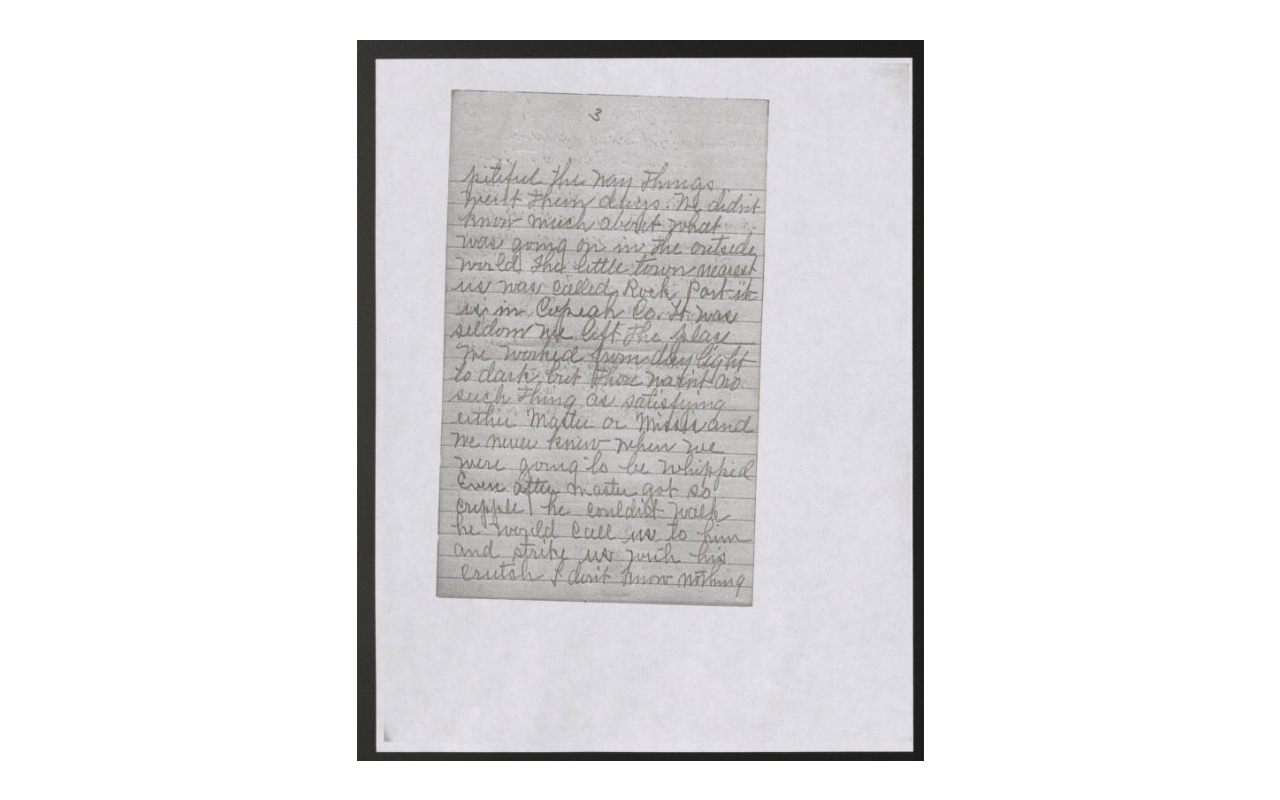 3
pitiful the way things
went them days. We didn't
know much about what
was going on in the outside
world. The little town nearest
us was called Rock Port it
is in Copeah Co. It was
seldom we left the place
We worked from day light
to dark, but there wa'nt no
such thing as satisfying
either Master or Missis and
we never knew when we
were going to be whipped
Even after master got so
cripple he couldn't walk
he would call us to him
and strike us with his
crutch I don't know nothing